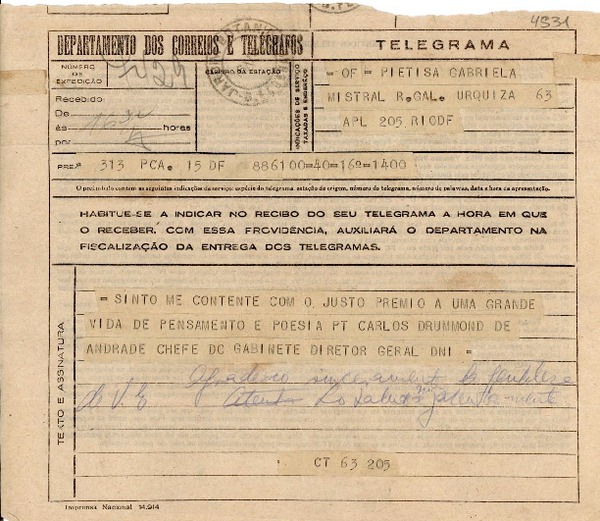 4931
DEPARTAMENTO DOS CORREIOS E TELÉGRAFOS
TELEGRAMA
NÚMERO DE EXPEDIÇÃO
CARIMBO DA ESTAÇÃO
INDICAÇÕES DE SERVIÇO TAXADAS E ENDEREÇO
Recebido
De
às 1632 horas
por
= OF = PIETISA GABRIELA
MISTRAL R.GAL. URQUIZA 63
APL 205 RIODF
PRE.º 313 PCA. 15 DF 886100=40=16º=1400
O preâmbulo contem as seguintes indicações de serviço: espécie do telegrama, estação de origem, número do telegrama, número de palavras, data e hora da apresentação.
HABITUE-SE A INDICAR NO RECIBO DO SEU TELEGRAMA A HORA EM QUE
O RECEBER. COM ESSA PROVIDÊNCIA, AUXILIARÁ O DEPARTAMENTO NA
FISCALIZAÇÃO DA ENTREGA DOS TELEGRAMAS.
TEXTO E ASSINATURA
= SINTO ME CONTENTE COM O JUSTO PREMIO A UMA GRANDE
VIDA DE PENSAMENTO E POESIA PT CARLOS DRUMMOND DE
ANDRADE CHEFE DO GABINETE DIRETOR GERAL DNI =
Agradesco sinceramente la gentileza
de V. E.
CT 63 205
Imprensa Nacional 14.914